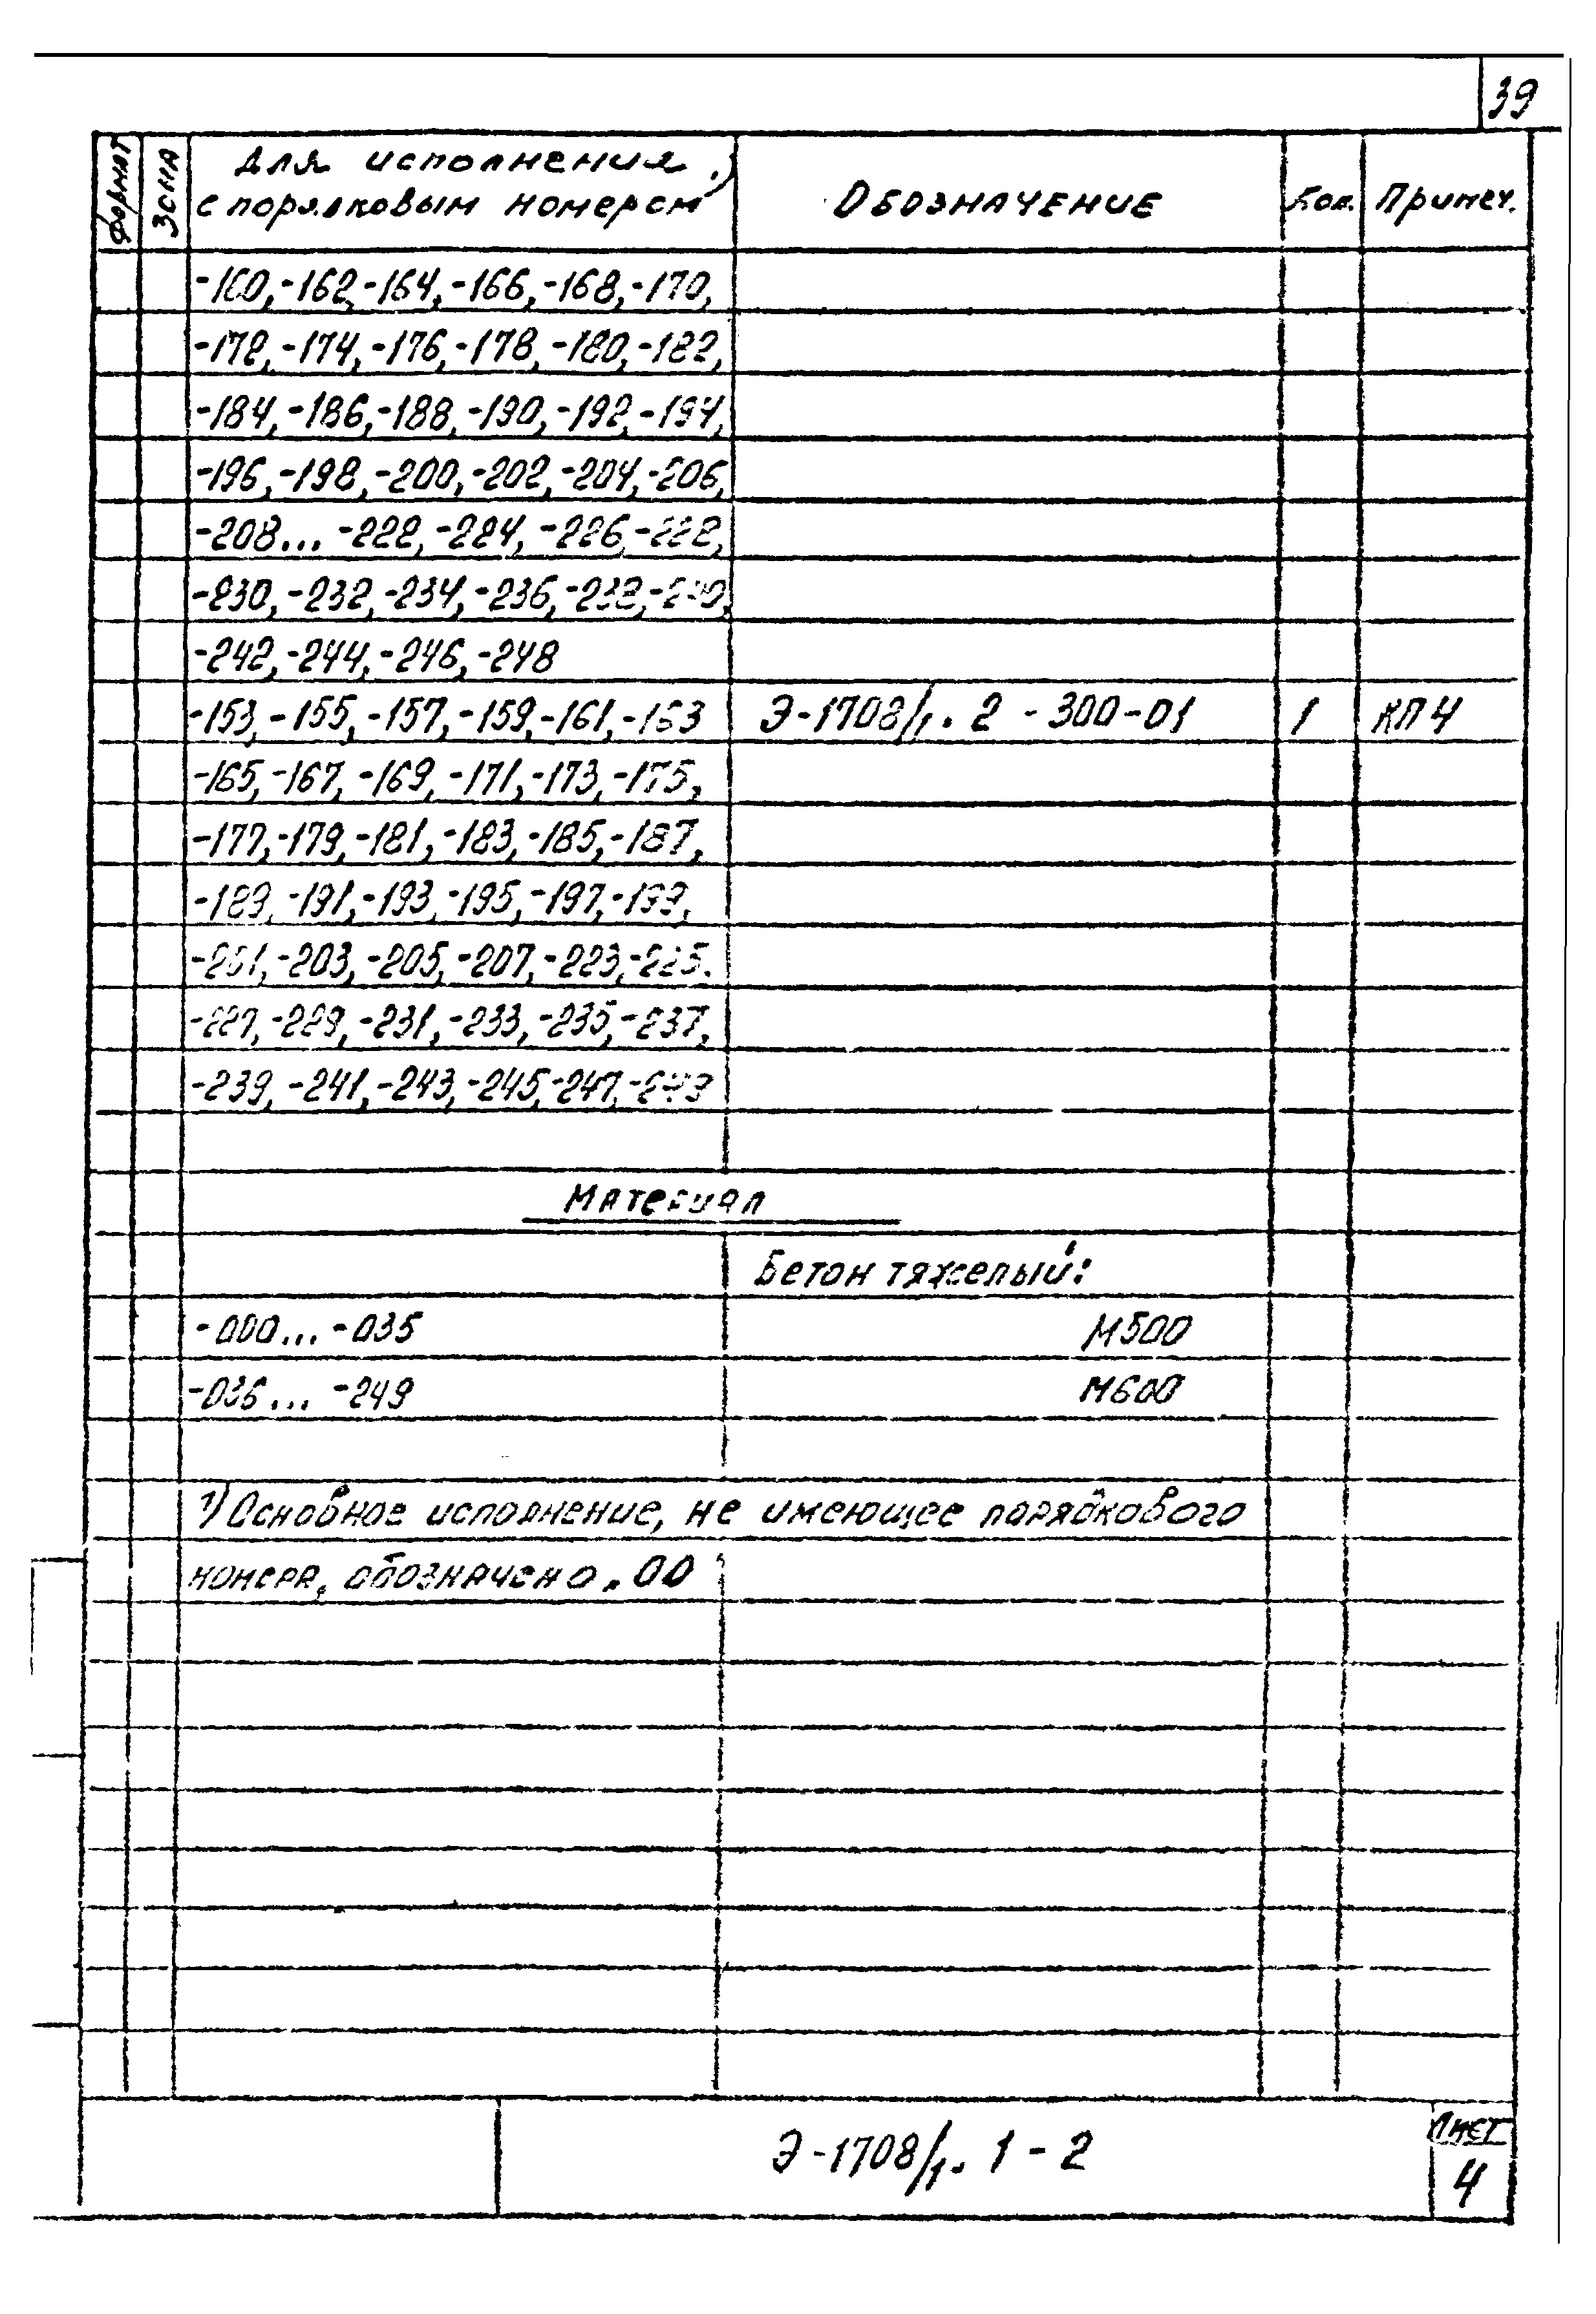 39
Формат Зона Для исполнения с порядковым номером 1) Обозначение Кол. Примеч.
-160, -162, -164, -166, -168, -170,
-172, -174, -176, -178, -180, -182,
-184, -186, -188, -190, -192, -194,
-196, -198, -200, -202, -204, -206,
-208... -222, -224, -226, -228,
-230, -232, -234, -236, -238, -240,
-242, -244, -246, -248
-153, -155, -157, -159, -161, -163 Э-1708/1. 2 - 300-01 1 КП4
-165, -167, -169, -171, -173, -175,
-177, -179, -181, -183, -185, -187,
-189, -191, -193, -195, -197, -199,
-201, -203, -205, -207, -223, -225.
-227, -229, -231, -233, -235, -237,
-239, -241, -243, -245, -247, -249
Материал
Бетон тяжелый:
-000... -035 М500
-036... -249 М600
1) Основное исполнение, не имеющее порядкового
номера, обозначено „00
Э-1708/1. 1 - 2
Лист
4